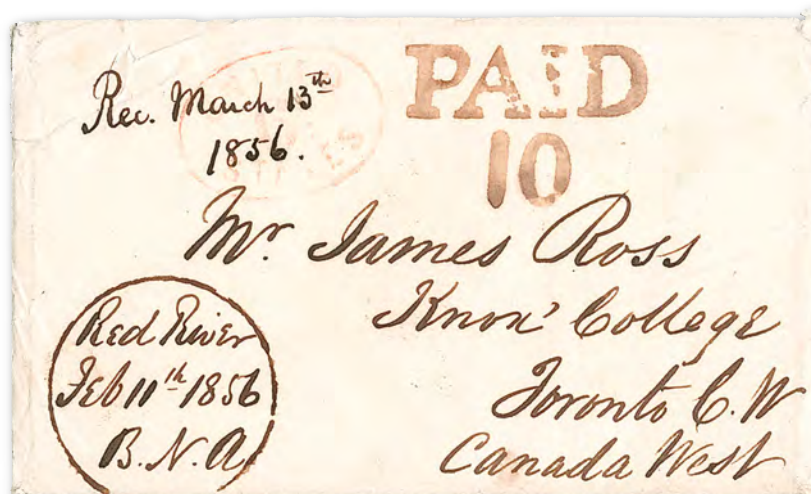 Rec. March 13th
1856.
PAID
10
UNITED
STATES
Mr. James Ross
Knox' College
Toronto C. W
Canada West
Red River
Feb 11th 1856
B. N. A.